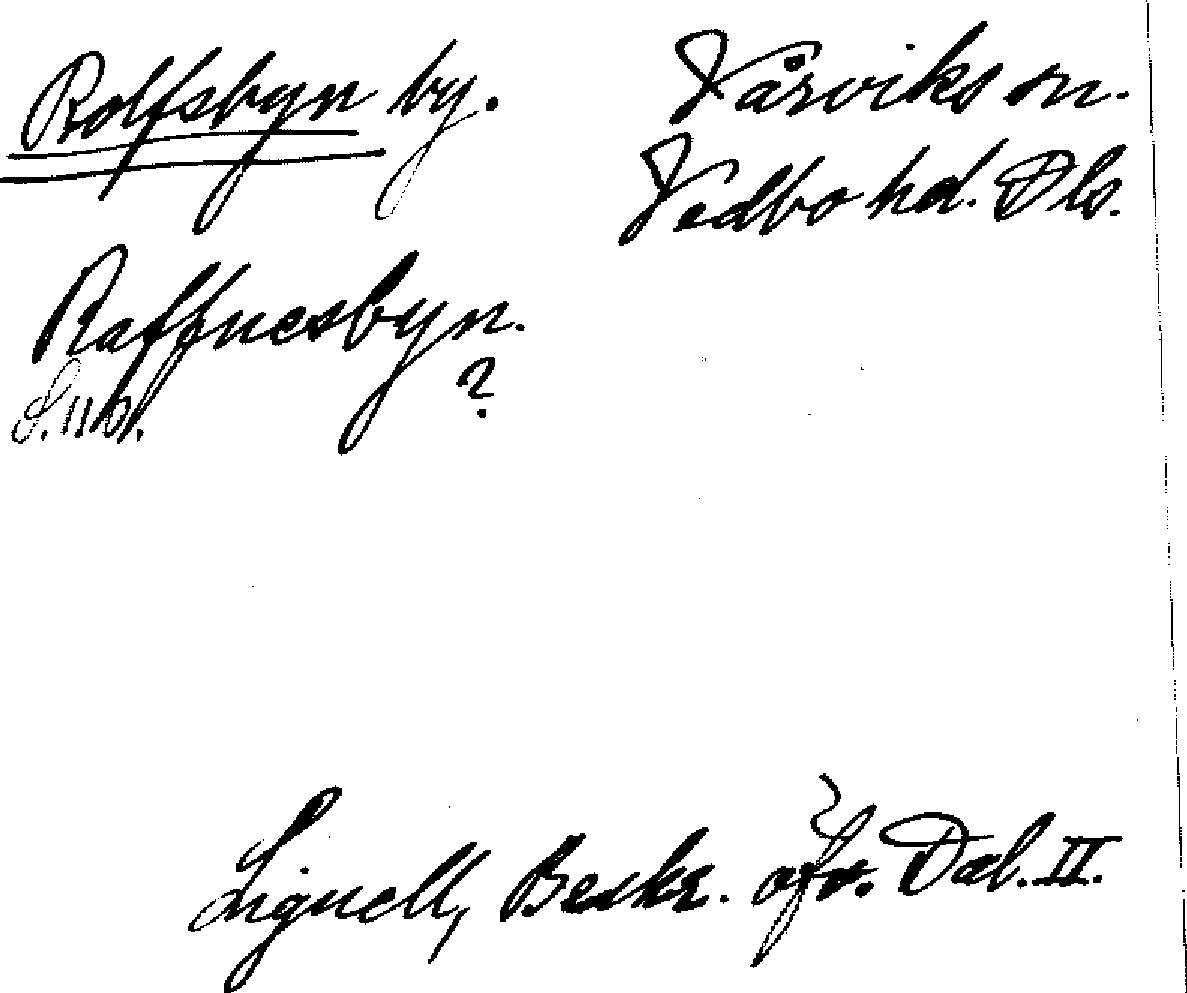 Rolfsbyn by. Vårviks sn.
Vedbo hd. Dls.
Raffnesbyn.
S. 116. ?
Lignell, Beskr. öfv. Dal. II.